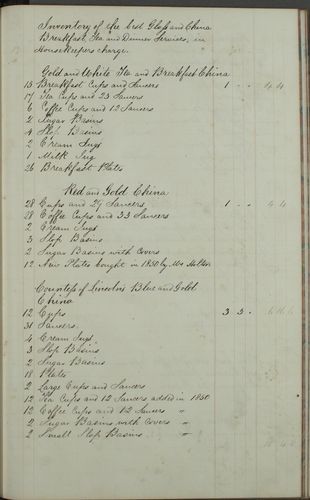 Inventory of the best Glass and China
Breakfast, Tea and Dinner Services, in
Housekeepers charge.
Gold and White Tea and Breakfast China
15 Breakfast Cups and Saucers 1 - - 4 4
17 Tea Cups and 23 Saucers
6 Coffee Cups and 12 Saucers
2 Sugar Basins
4 Slop Basins
2 Cream Jugs
1 Milk Jug
26 Breakfast Plates
Red and Gold China
28 Cups and 29 Saucers 1 - - 4 4
28 Coffee Cups and 33 Saucers
2 Cream Jugs
3 Slop Basins
2 Sugar Basins with Covers
12 New Plates bought in 1850 by Mrs
Countess of Lincoln's Blue and Gold
China
12 Cups 3 3 -
31 Saucers
4 Cream Jugs
3 Slop Basins
2 Sugar Basins
18 Plates
2 Large Cups and Saucers
12 Tea Cups and 12 Saucers added in 1850
12 Coffee Cups and 12 Saucers "
2 Sugar Basins with Covers "
2 Small Slop Basins "